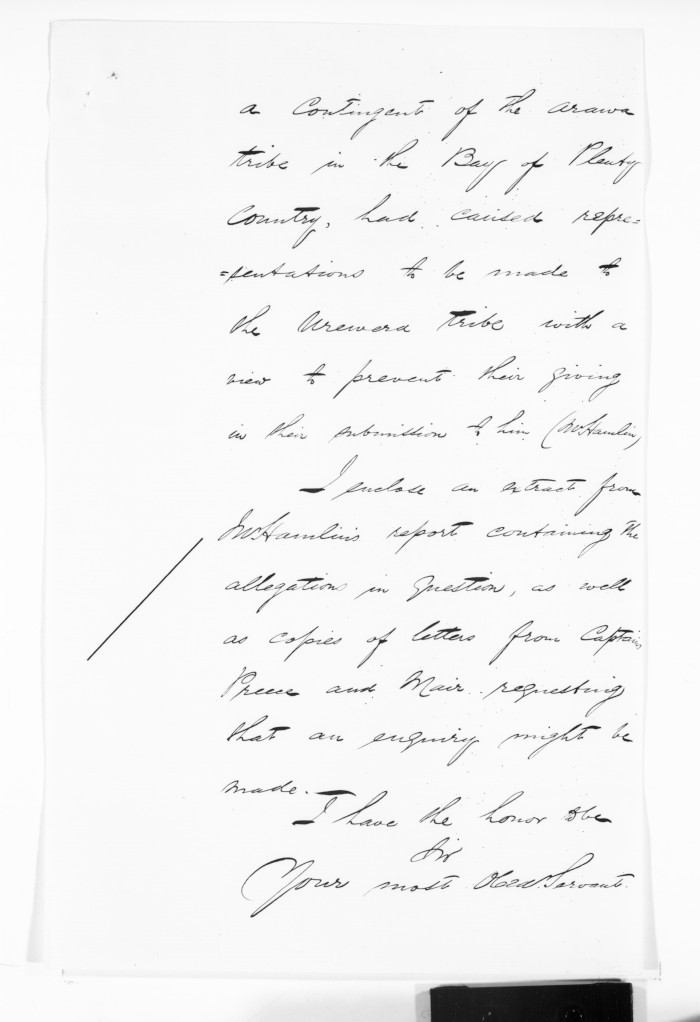 a Contingent of the Arawa
tribe in the Bay of Plenty
Country, had caused repre=
=sentations to be made to
the Urewera tribe with a
view to prevent their giving
in their submission to him (Mr Hamlin)
I enclose an extract from
Mr Hamlin's report containing the
allegations in question, as well
as copies of letters from Captains
Preece and Mair requesting
that an enquiry might be
made.—
I have the honor to be
Sir
Your most Obed. Servant.